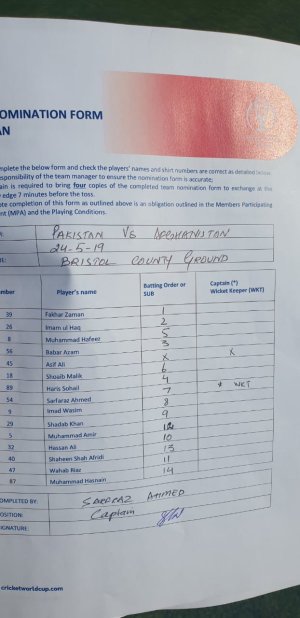 OMINATION FORM
AN
mplete the below form and check the players' names and shirt numbers are correct as detailed below.
esponsibility of the team manager to ensure the nomination form is accurate;
ain is required to bring four copies of the completed team nomination form to exchange at the
edge 7 minutes before the toss.
ote completion of this form as outlined above is an obligation outlined in the Members Participating
nt (MPA) and the Playing Conditions.
PAKISTAN VS AFGHANISTAN
24-5-19
BRISTOL COUNTY GROUND
mber Player's name Batting Order or SUB Captain (*) Wicket Keeper (WKT)
39 Fakhar Zaman 1
26 Imam ul Haq 2
8 Muhammad Hafeez 5
56 Babar Azam 3
45 Asif Ali x x
18 Shoaib Malik 6
89 Haris Sohail 4
54 Sarfaraz Ahmed 7 * WKT
9 Imad Wasim 8
29 Shadab Khan 9
5 Muhammad Amir 12
32 Hassan Ali 10
40 Shaheen Shah Afridi 13
47 Wahab Riaz 11
87 Muhammad Hasnain 14
OMPLETED BY: SARFRAZ AHMED
OSITION: Captain
GNATURE:
cricketworldcup.com